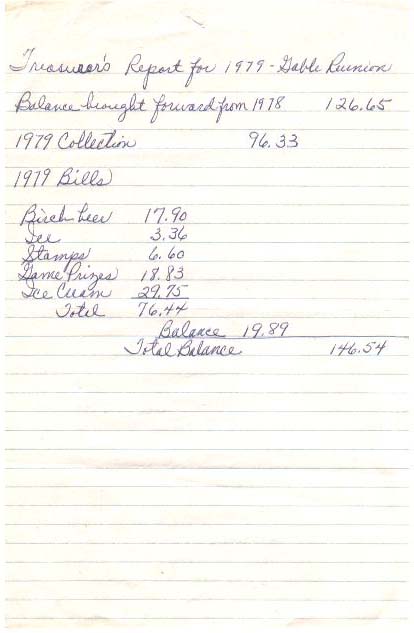 Treasurer's Report for 1979 - Gable Reunion
Balance brought forward from 1978 126.65
1979 Collection 96.33
1979 Bills
Birch beer 17.90
Ice 3.36
Stamps 6.60
Game Prizes 18.83
Ice Cream 29.75
Total 76.44
Balance 19.89
Total Balance 146.54